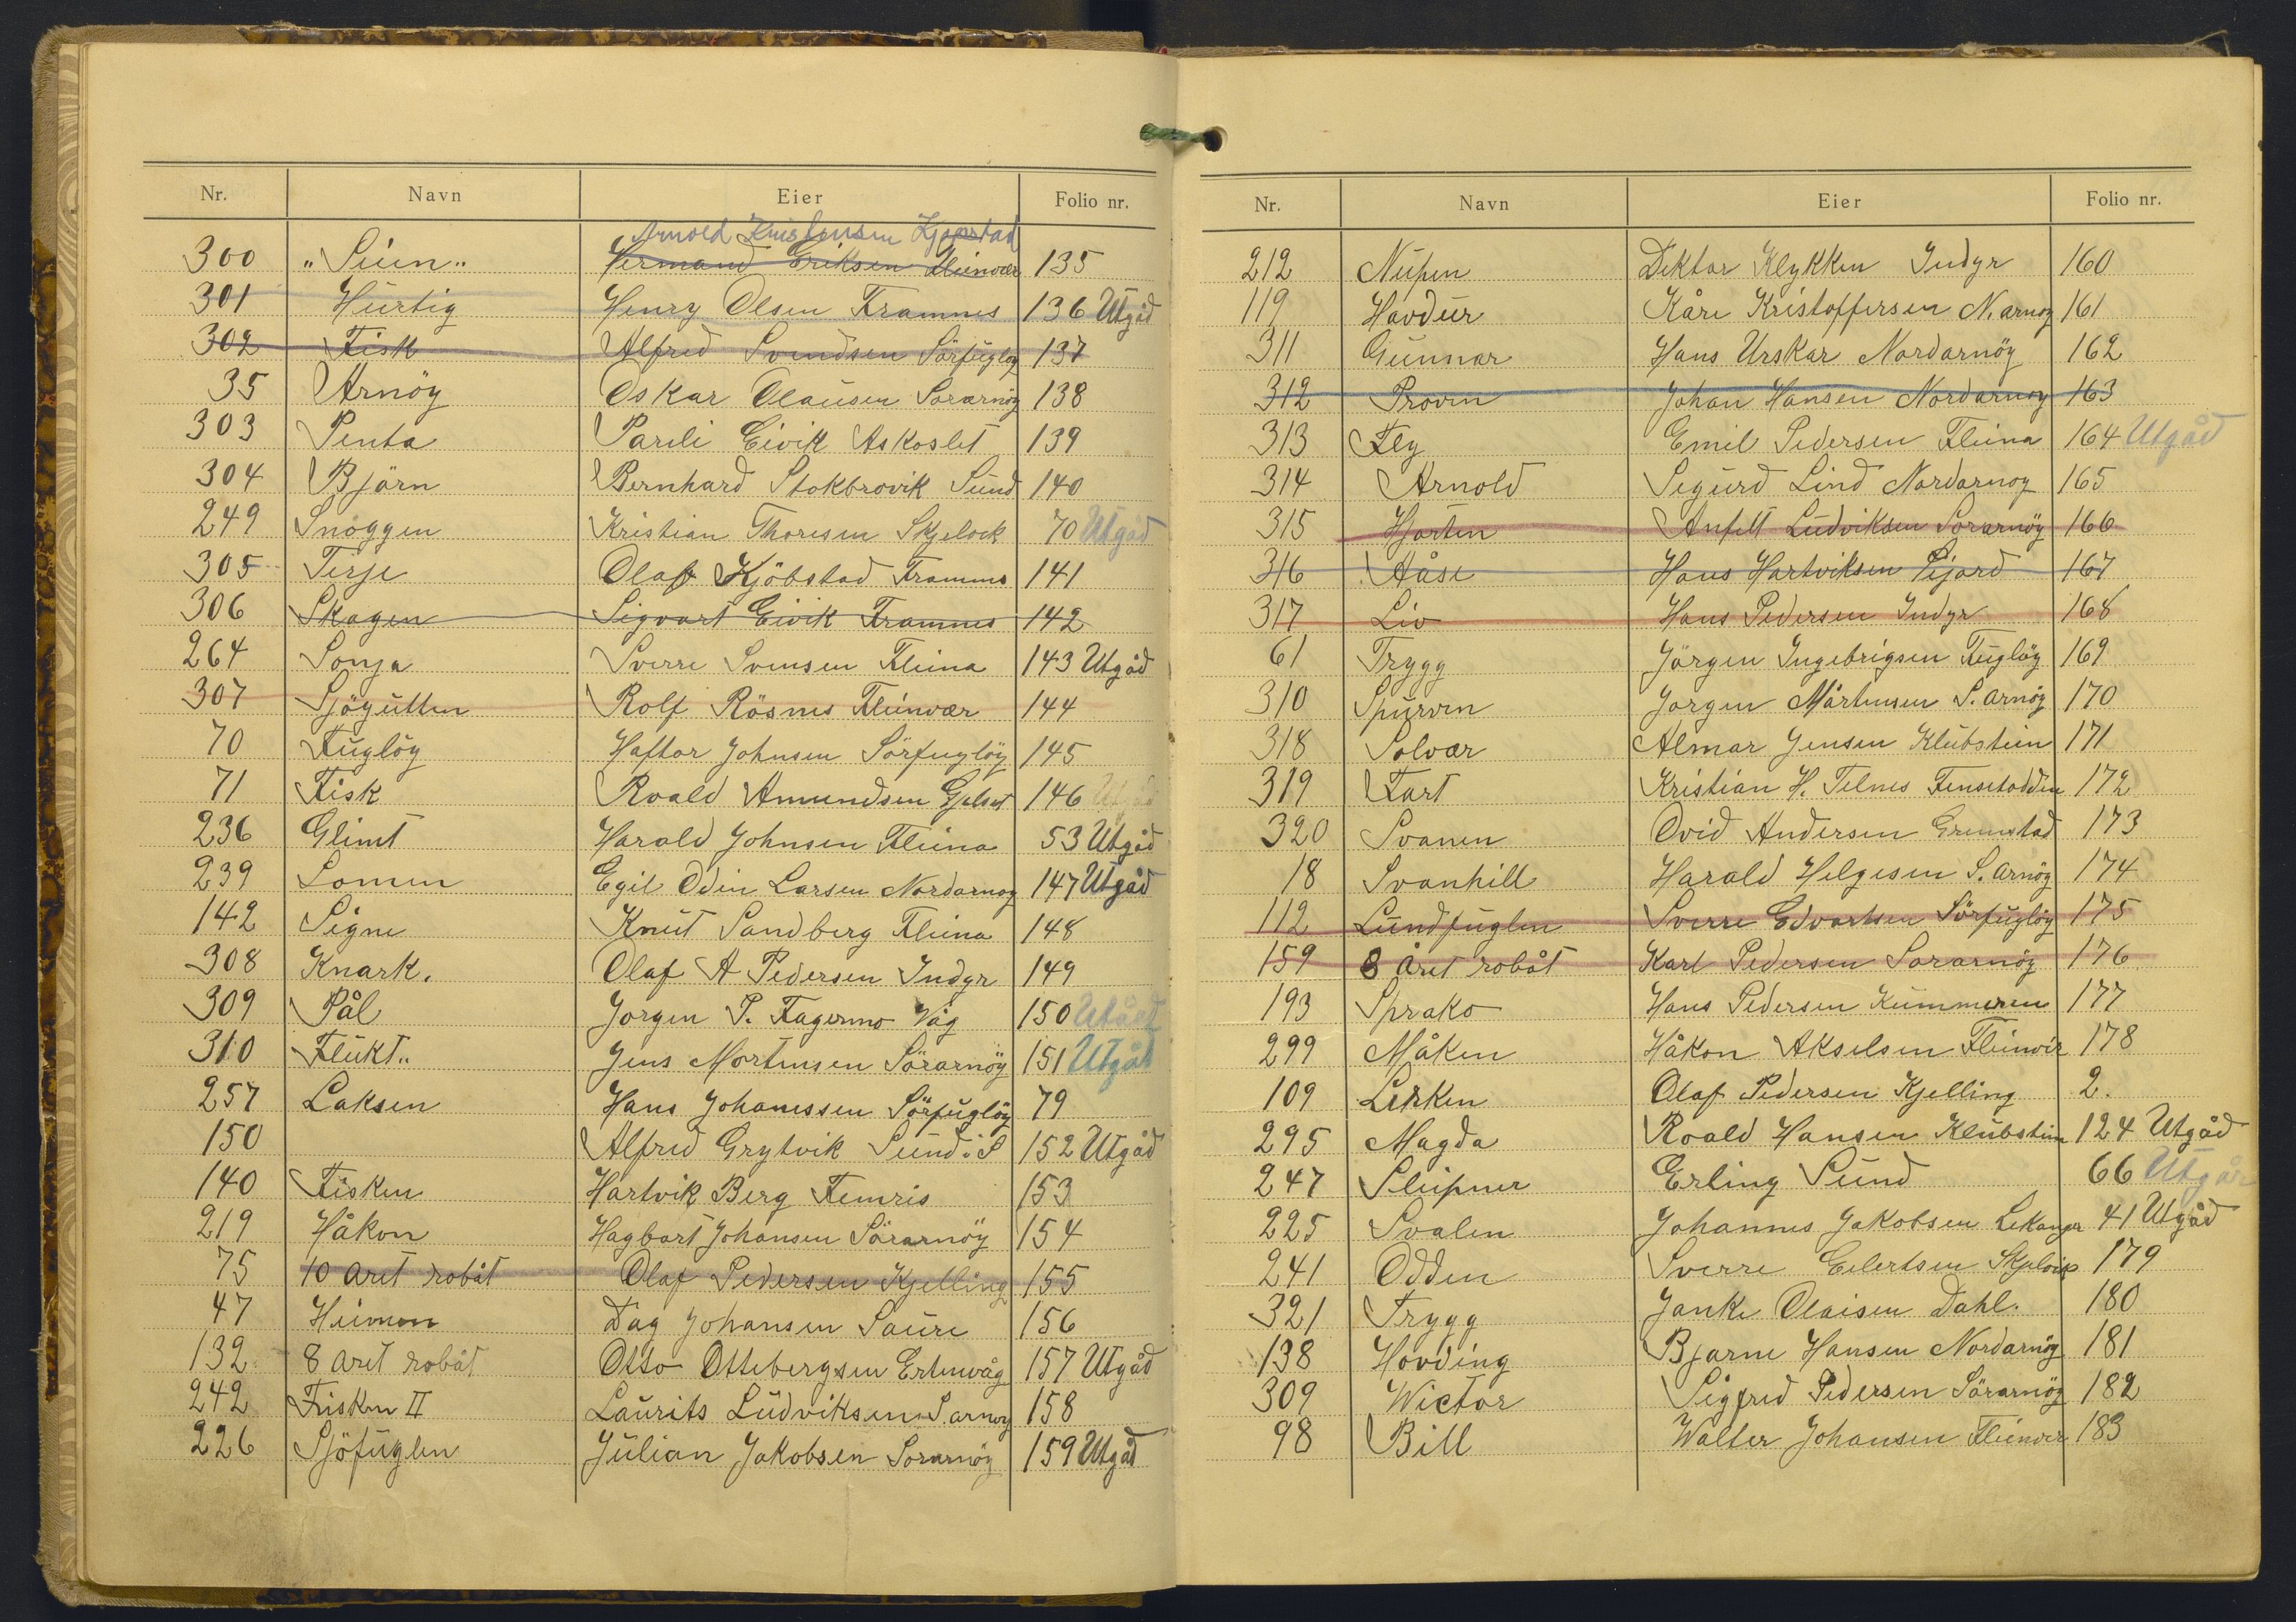 Nr. Navn Eier Folio nr.
Arnold Kristensen Kjopstad
300 "Siin" Hermand Eriksen Fleinvær 135
301 Hurtig Henry Olsen Framnes 136 Utgåd
302 Fisk Alfred Svendsen Sörfugløy 137
35 Arnöy Oskar Olausen Sorarnöy 138
303 Penta Pareli Eivik Askoslet 139
304 Björn Bernhard Stokbrovik Sund 140
249 Snöggen Kristian Thoresen Skjelvek 70 Utgåd
305 Terje Olaf Kjöbstad Framnes 141
306 Skagen Sigvart Eivik Framnes 142
264 Sonja Sverre Svensen Fleina 143 Utgåd
307 Sjögutten Rolf Rösnes Fleinvær 144
70 Fuglöy Haftor Johnsen Sörfuglöy 145
71 Fisk Roald Amundsen Gjelset 146 Utgåd
236 Glimt Harald Johnsen Fleina 53 Utgåd
239 Lomen Egil Odin Larsen Nordarnoy 147 Utgåd
142 Signe Knut Sandberg Fleina 148
308 Knark. Olaf A Pedersen Indyr 149
309 Pål Jorgen P. Fagermo Våg 150 Utgåd
310 Flukt.. Jens Mortensen Sörarnöy 151 Utgåt
257 Laksen Hans Johanssen Sörfuglöy 79
150 Alfred Grytvik Sund i S 152 Utgåd
140 Fisken Hartvik Berg Femris 153
219 Håkon Hagbart Johansen Sörarnöy 154
75 10 aret robåt Olaf Pedersen Kjelling 155
47 Heimen Dag Johansen Saure 156
132 8 aret robåt Otto Ottebergsen Ertenvåg 157 Utgåd
242 Frisken II Laurits Ludviksen S. arnoy 158
226 Sjöfuglen Julian Jakobsen Sorarnöy 159 Utgåd
Nr. Navn Eier Folio nr.
212 Nupen Diktar Klykken Indyr 160
119 Havdur Kåre Kristoffersen N. arnoy 161
311 Gunnar Hans Urskar Nordarnöy 162
312 Proven Johan Hansen Nordarnoy 163
313 Fly Emil Pedersen Fleina 164 Utgåd
314 Arnold Sigurd Lind Nordarnoy 165
315 Hjorten Anfelt Ludviksen Sorarnöy 166
316 Håse Hans Hartviksen 167
317 Liv Hans Pedersen Indyr 168
61 Trygg Jörgen Ingebrigsen Fuglöy 169
310 Spurven Jorgen Mårtensen S. arnöy 170
318 Solvær Almar Jensen Klubstein 171
319 Fart Kristian H. Telnes Finsetodden 172
320 Svanen Ovid Andersen Grimstad 173
18 Svanhill Harald Helgesen S. arnöy 174
112 Lundfuglen Sverre Edvartsen Sörfuglöy 175
159 8 året robåt Karl Pedersen Sorarnöy 176
193 Sprako Hans Pedersen Kummeren 177
299 Måken Håkon Akselsen Fleinvær 178
109 Lerken Olaf Pedersen Kjelling 2.
295 Magda Roald Hansen Klubstein 124 Utgåd
247 Sleipner Erling Sund 66 Utgår
225 Svalen Johannes Jakobsen Lekanger 41 Utgåd
241 Odden Sverre Eilertsen Skjelvik 179
321 Trygg Janke Olaisen Dahl. 180
138 Hovding Bjarne Hansen Nordarnöy 181
309 Wictor Sigfred Pedersen Sörarnöy 182
98 Bill Walter Johansen Fleinvær 183